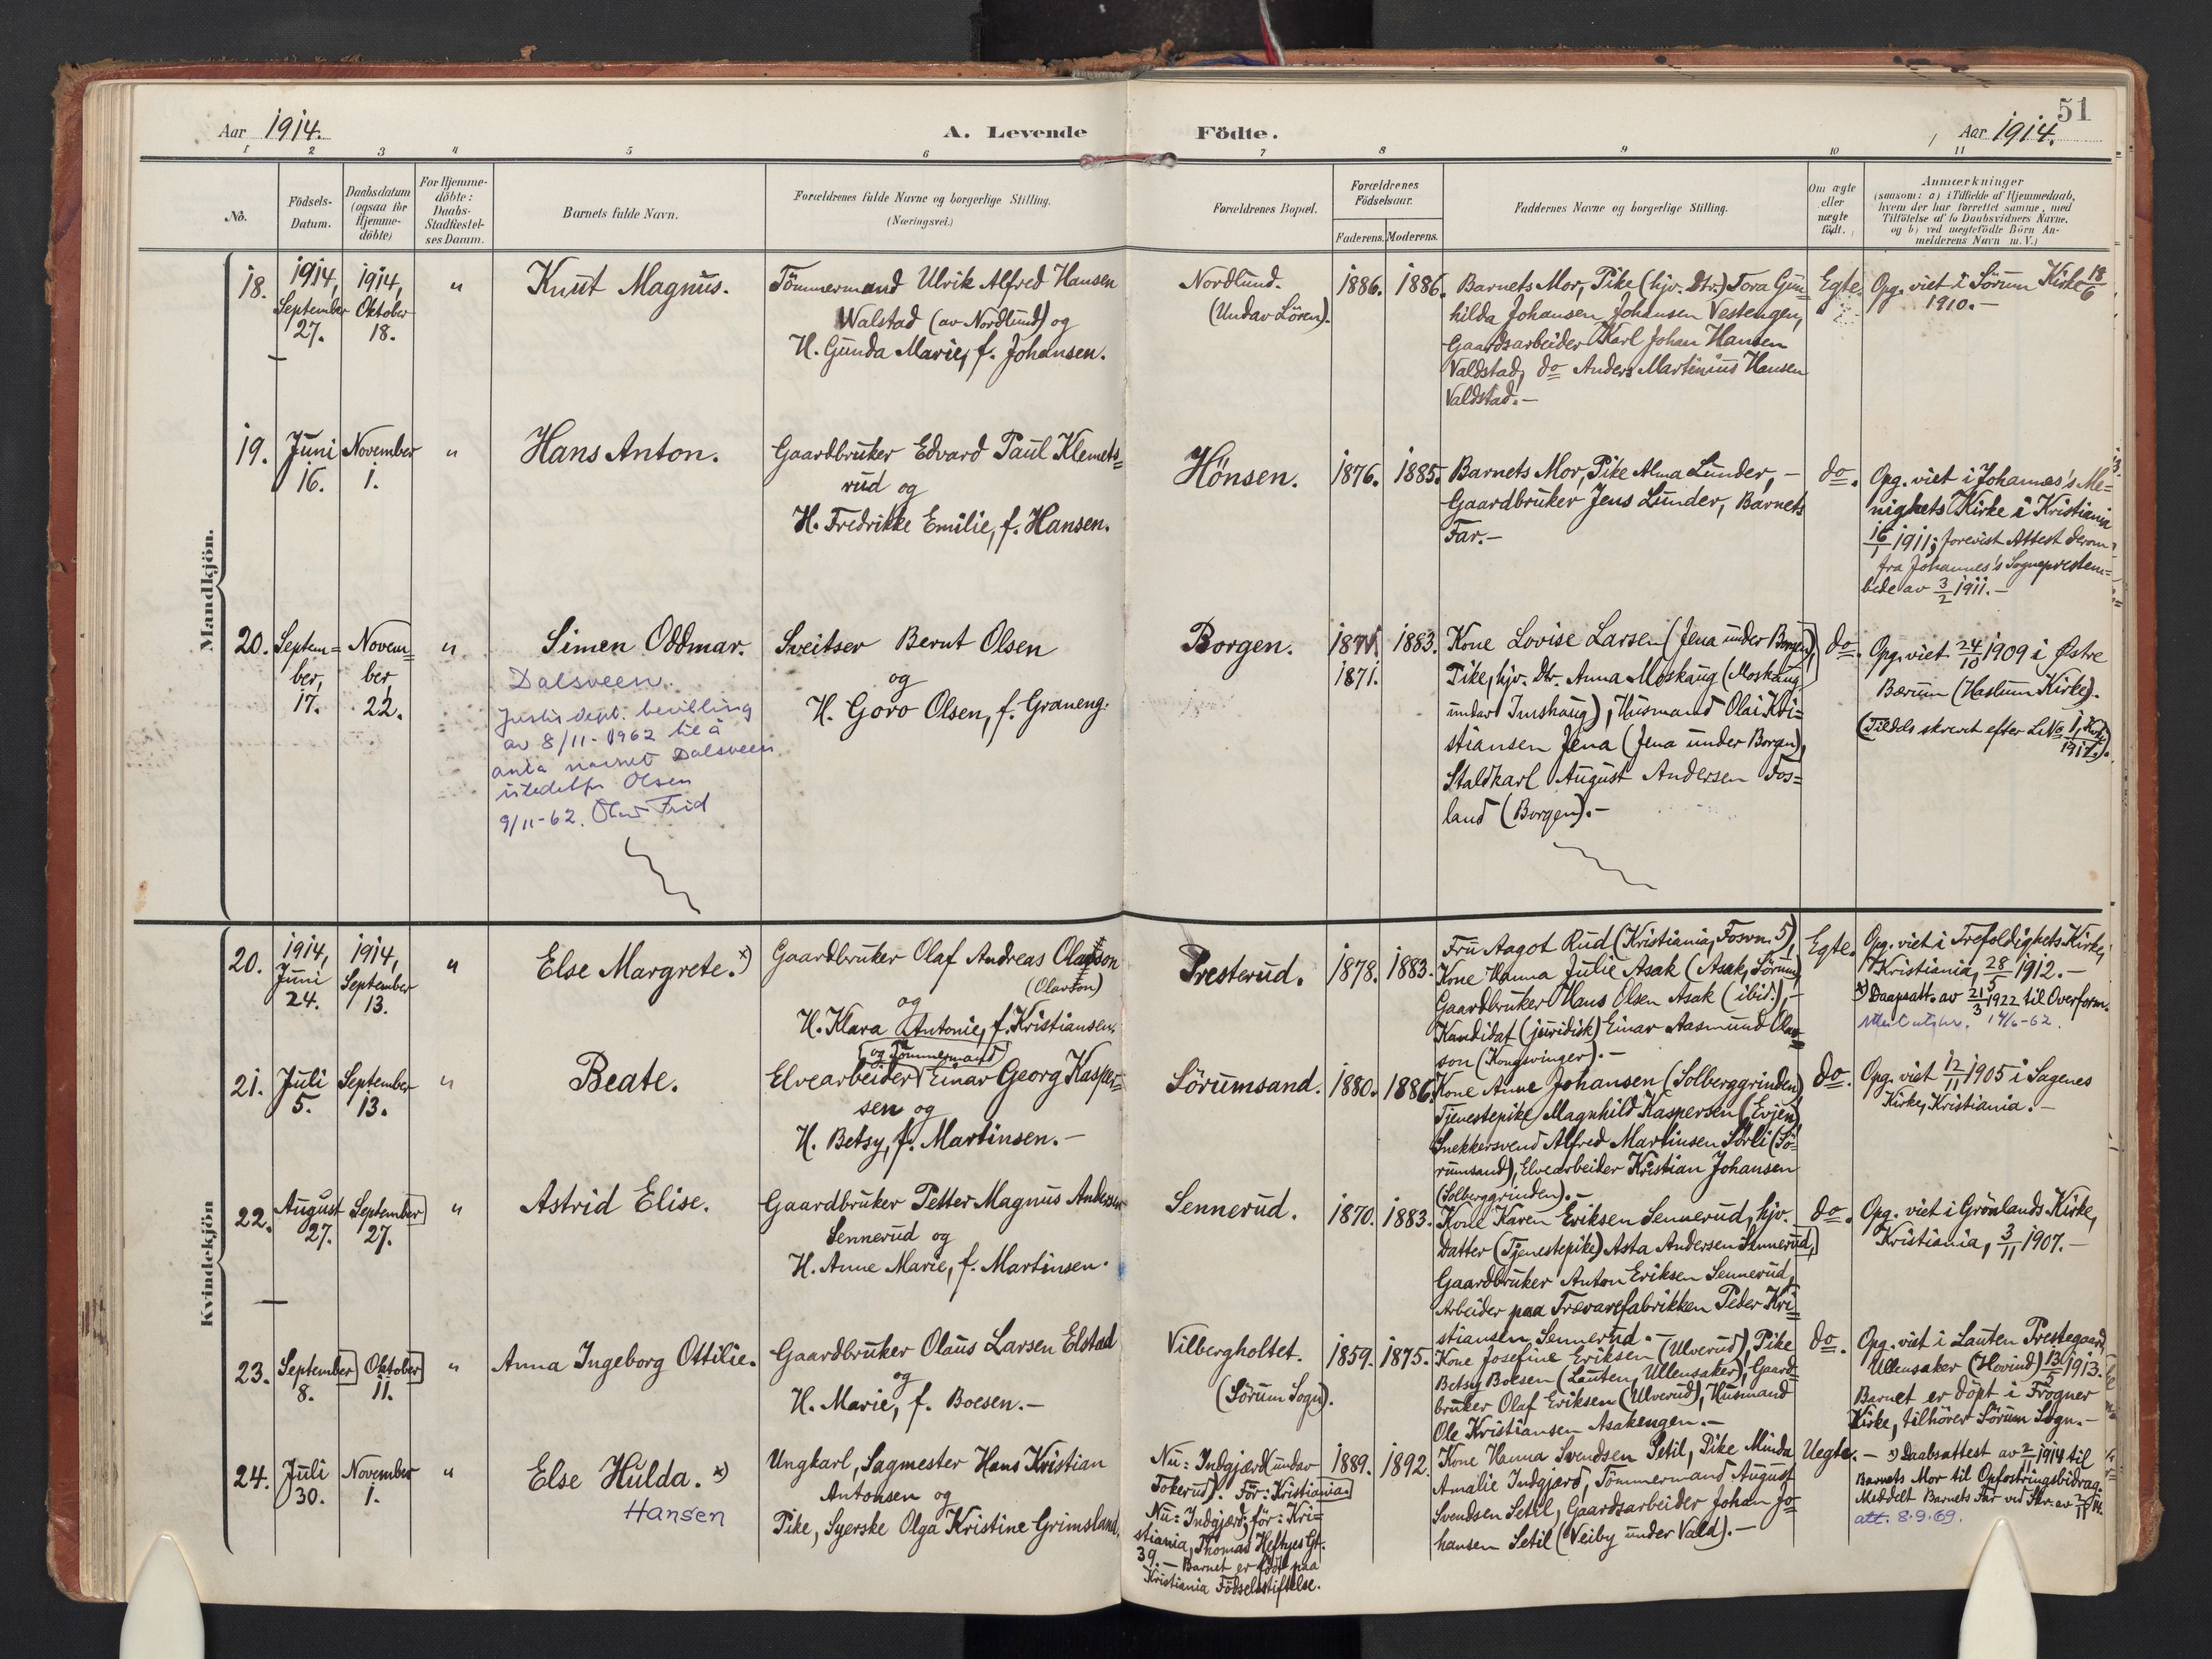 51
Aar 1914.
A. Levende Födte.
Aar 1914.
1 2 3 4 5 6 7 8 9 10 11
No.
Födsels-
Datum.
Daabsdatum
(ogsaa for
Hjemme-
döbte)
For Hjemme-
döbte:
Daabs-
Stadfæstel-
ses Datum.
Barnets fulde Navn.
Forældrenes fulde Navne og borgerlige Stilling.
(Næringsvei.)
Forældrenes Bopæl.
Forældrenes
Födselsaar.
Faderens. Moderens.
Faddernes Navne og borgerlige Stilling.
Om ægte
eller
uægte
födt.
Anmærkninger
(saasom: a) i Tilfælde af Hjemmedaab,
hvem der har forrettet samme, med
Tilföielse af to Daabsvidners Navne,
og b) ved uægtefödte Börn An-
melderens Navn m. V.)
Mandkjön.
18.
1914,
September
27.
1914,
Oktober
18.
"
Knut Magnus.
Tömmermand Ulrik Alfred Hansen
Walstad (av Nordlund) og
H. Gunda Marie, f. Johansen.
Nordlund.
(Undav Lören).
1886. 1886.
Barnets Mor, Pike (hjv. Dtr.) Tora Gun=
hilda Johansen Johansen Vestengen,
Gaardsarbeider Karl Johan Hansen
Valdstad, do Anders Martinius Hansen
Valdstad.-
Egte.
Opg. viet i Sörum Kirke 18/6
1910.-
19.
Juni
16.
November
1.
"
Hans Anton.
Gaardbruker Edvard Paul Klemets=
rud og
H. Fredrikke Emilie, f. Hansen.
Hönsen.
1876. 1885.
Barnets Mor, Pike Alma Lunder, -
Gaardbruker Jens Lunder, Barnets
Far.-
do.
Opg. viet i Johannes's Me=
nighets Kirke i Kristiania
16/1 1911; forevist Attest derom
fra Johannes's Sogneprestem=
bede av 3/2 1911.-
20.
Septem=
ber,
17.
Novem=
ber,
22.
"
Simen Oddmar.
Dalsveen.
Justisdept. bevilling
av 8/11-1962 til å
anta navnet Dalsveen
istedetfor Olsen
9/11-62. Olav Frid
Sveitser Bernt Olsen
og
H. Goro Olsen, f. Graneng.
Borgen.
1871. 1883.
Kone Lovise Larsen (Jena under Borgen),
Pike, hjv. Dtr. Anna Moskaug (Moskaug
under Imshaug), Husmand Olai Kri=
stiansen Jena (Jena under Borgen),
Staldkarl August Andersen Fos=
land (Borgen).-
do.
Opg. viet 24/10 1909 i Østre
Bærum (Haslum Kirke).
Kvindekjön
20.
1914,
Juni
24.
1914,
September
13.
"
Else Margrete. x)
Gaardbruker Olaf Andreas Olafson
(Olavson)
og
H. Klara Antonie, f. Kristiansen.
Presterud.
1878. 1883.
Fru Aagot Rud (Kristiania, Fosvn. 5),
Kone Hanna Julie Asak (Asak, Sörum),
Gaardbruker Hans Olsen Asak (ibid.), -
Kandidat (juridisk) Einar Aasmund Olav=
son (Kongsvinger).-
Egte.
Opg. viet i Trefoldighets Kirke,
Kristiania, 28/5 1912.-
x) Daapsatt. av 21/3 1922 til Overform.
21.
Juli
5.
September
13.
"
Beate.
og Tömmermand
Elvearbeider Einar Georg Kasper=
sen og
H. Betsy, f. Martinsen.-
Sörumsand.
1880. 1886.
Kone Anne Johansen (Solberggrinden)
Tjenestepike Magnhild Kaspersen (Evjen)
Snekkersvend Alfred Martinsen Sörli (Sö=
rumsand), Elvearbeider Kristian Johansen
(Solberggrinden).-
do.
Opg. viet 12/11 1905 i Sagenes
Kirke, Kristiania.-
22.
August
27.
September
27.
"
Astrid Elise.
Gaardbruker Petter Magnus Andersen
Sennerud og
H. Anne Marie, f. Martinsen.
Sennerud.
1870. 1883.
Kone Karen Eriksen Sennerud, hjv.
Datter (Tjenestepike) Asta Andersen Sennerud,
Gaardbruker Anton Eriksen Sennerud,
Arbeider paa Trævarefabrikken Peder Kri=
stiansen Sennerud.-
do.
Opg. viet i Grönlands Kirke,
Kristiania, 3/11 1907.-
23.
September
8.
Oktober
11.
"
Anna Ingeborg Ottilie.
Gaardbruker Olaus Larsen Elstad
og
H. Marie, f. Boesen.-
Vilbergholtet.
(Sörum Sogn).
1859. 1875.
Kone Josefine Eriksen (Ulverud), Pike
Betsy Boesen (Lauten, Ullensaker), Gaard=
bruker Olaf Eriksen (Ulverud), Husmand
Ole Kristiansen Asakengen.-
do.
Opg. viet i Lauten Prestegaard,
Ullensaker (Hovind) 13/5 1913.
Barnet er döpt i Frogner
Kirke, tilhörer Sörum Sogn.-
24.
Juli
30.
November
1.
"
Else Hulda. x)
Hansen
Ungkarl, Sagmester Hans Kristian
Antonsen og
Pike, Syerske Olga Kristine Grimsland.
Nu: Indgjærd (undav
Tokerud). För: Kristiania.
Nu: Indgjærd; för: Kri=
stiania, Thomas Heftyes Gt.
39. - Barnet er födt paa
Kristiania Födselsstiftelse.
1889. 1892.
Kone Hanna Svendsen Setil, Pike Minda
Amalie Indgjærd, Tömmermand August
Svendsen Setil, Gaardsarbeider Johan Jo=
hansen Setil (Veiby under Vald).-
Uegte.
- x) Daabsattest av 2/11 1914 til
Barnets Mor til Opfostringsbidrag.
Meddelt Barnets Far ved Skr. av 2/11 14.
att. 8.9.69.